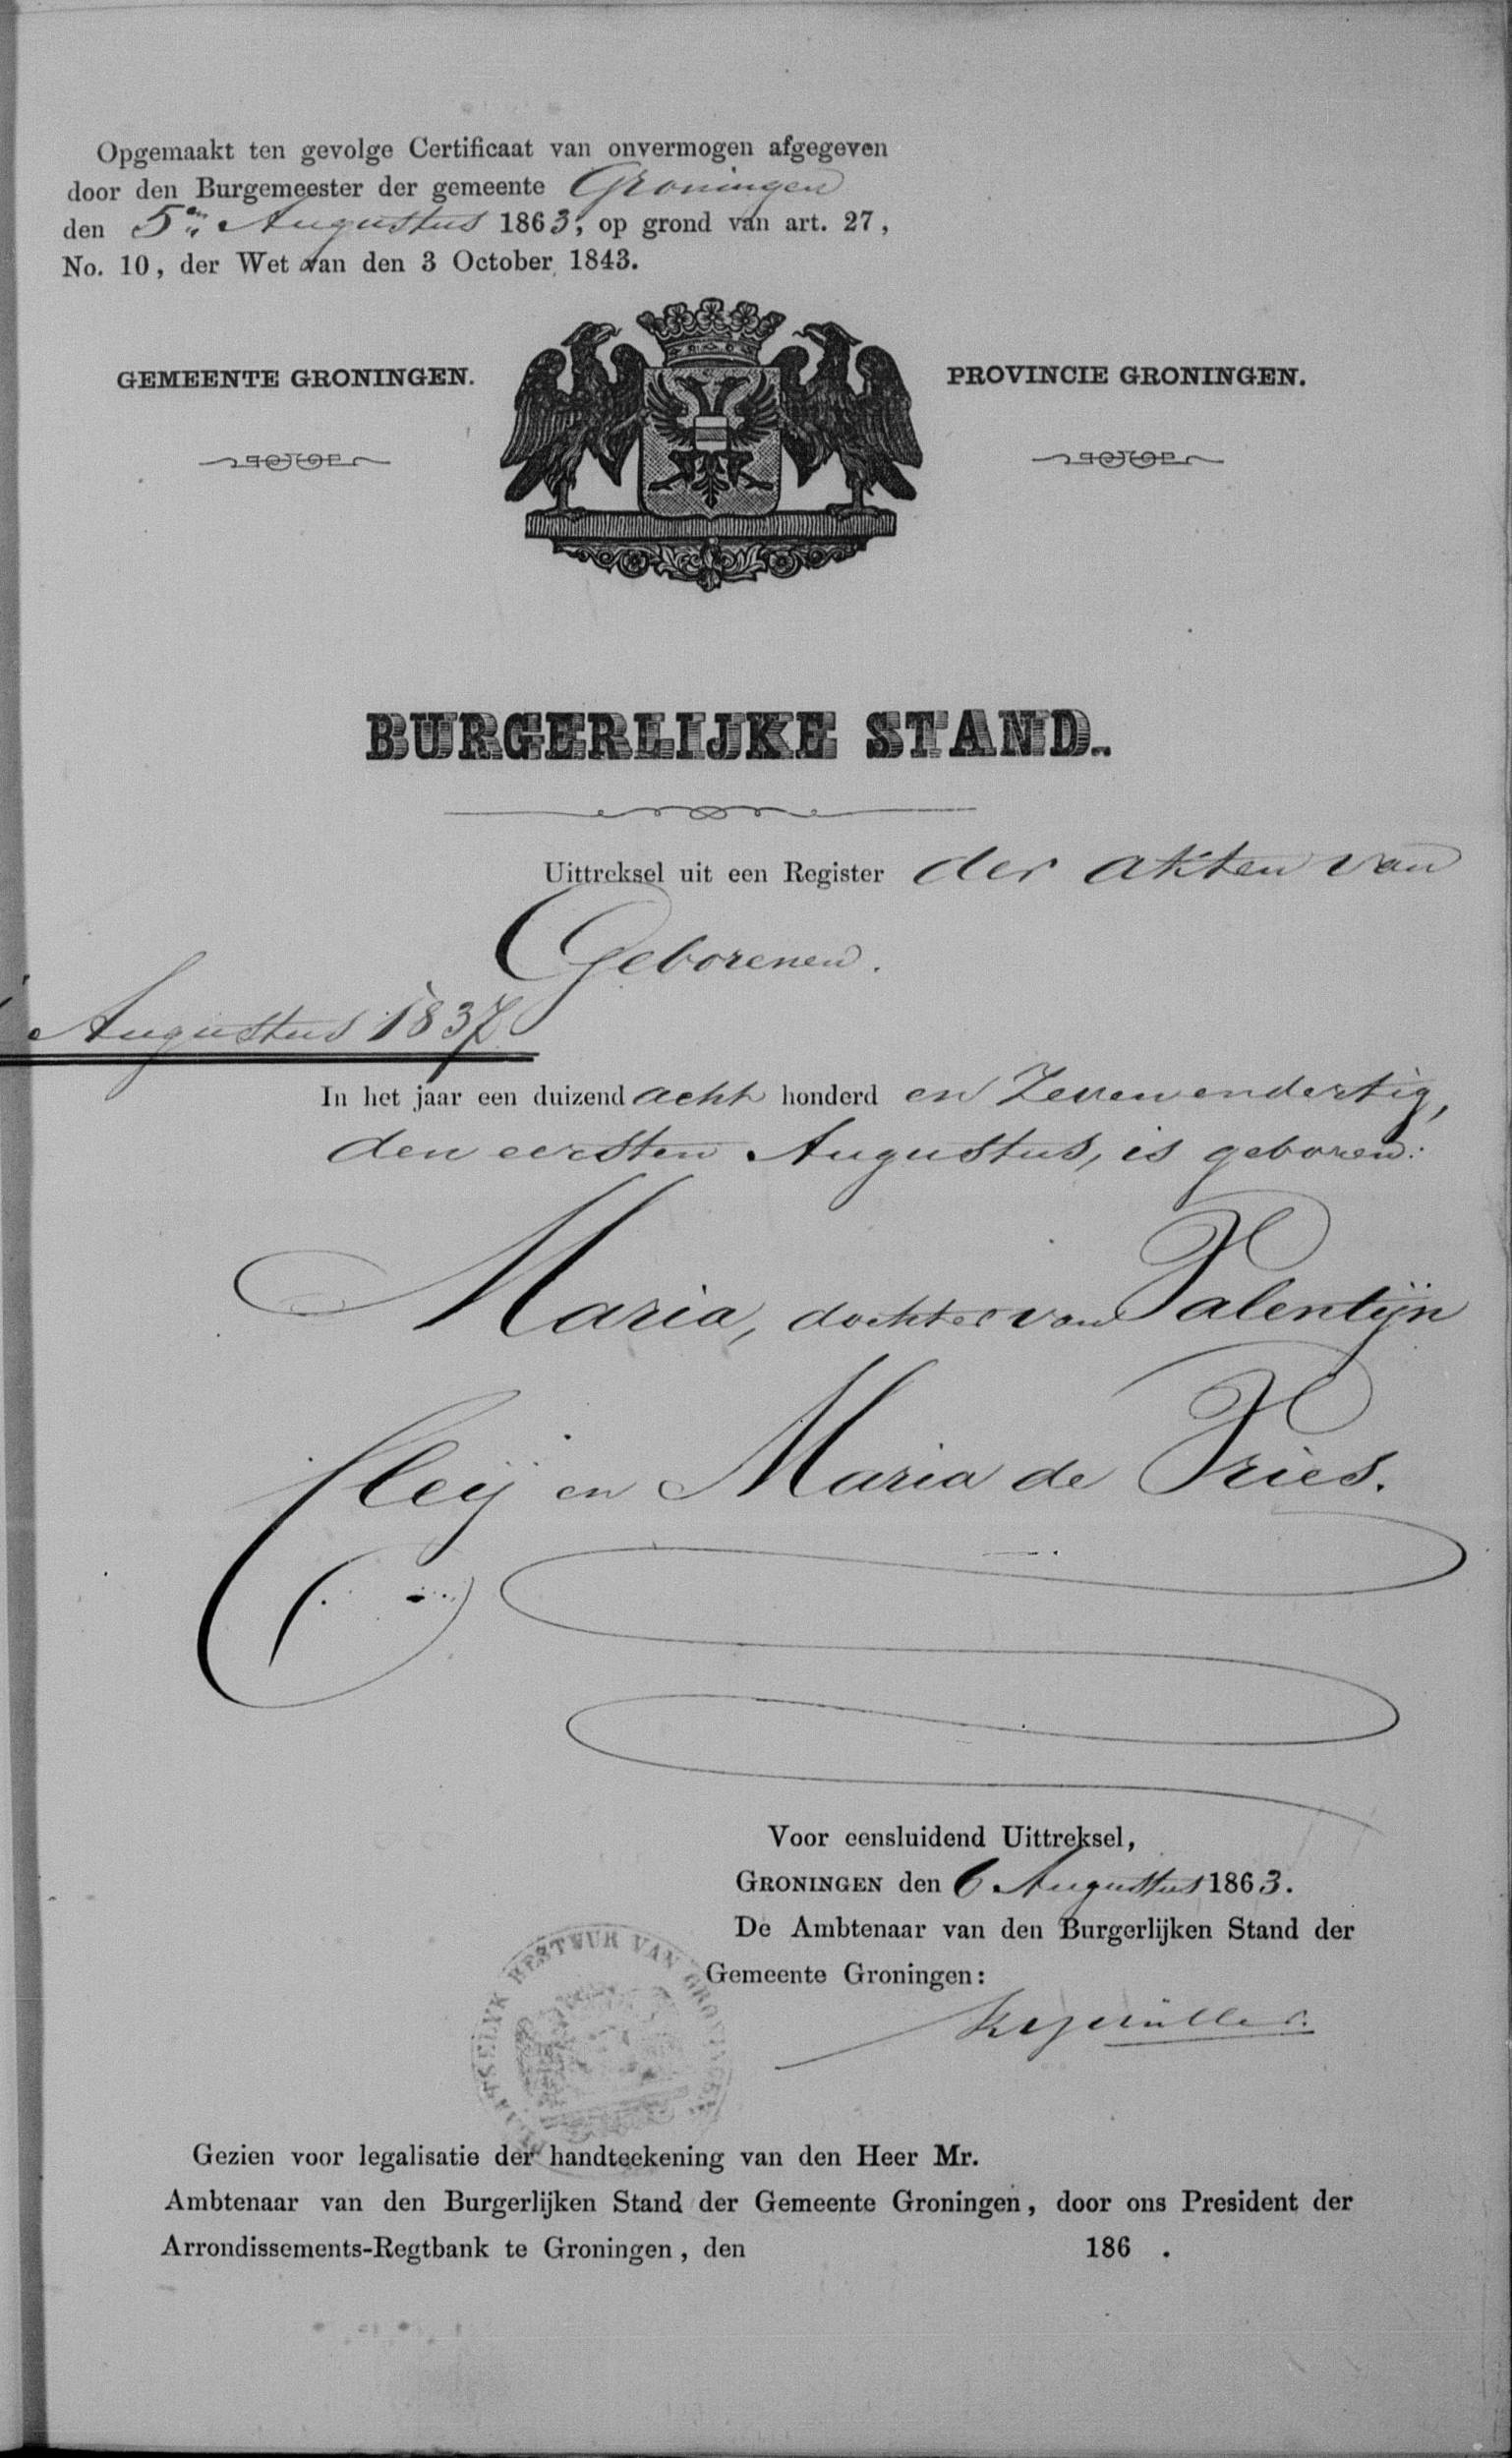 Opgemaakt ten gevolge Certificaat van onvermogen afgegeven
door den Burgemeester der gemeente Groningen
den 5en Augustus 1863, op grond van art. 27,
No. 10, der Wet van den 3 October 1843.
GEMEENTE GRONINGEN. PROVINCIE GRONINGEN.
BURGERLIJKE STAND.
Uittreksel uit een Register der akten van
Geborenen.
Augustus 1837
In het jaar een duizend acht honderd en Zevenendertig,
den eersten Augustus, is geboren:
Maria, dochter van Valentijn
Cleij en Maria de Vries.
Voor eensluidend Uittreksel,
GRONINGEN den 6 Augustus 1863.
De Ambtenaar van den Burgerlijken Stand der
Gemeente Groningen:
BESTUUR VAN GRONINGEN
Gezien voor legalisatie der handteekening van den Heer Mr.
Ambtenaar van den Burgerlijken Stand der Gemeente Groningen, door ons President der
Arrondissements-Regtbank te Groningen, den 186 .